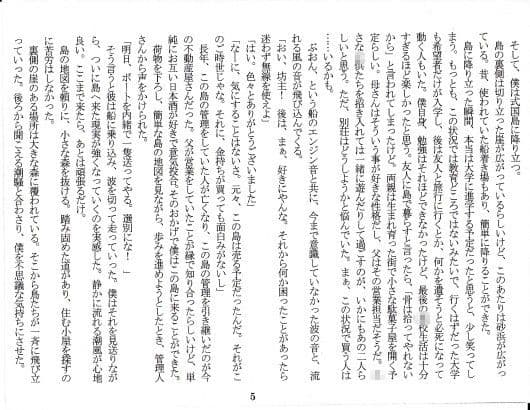 そして、僕は式国島に降り立った。
島の裏側は切り立った崖が広がっているらしいけど、このあたりは砂浜が広がっ
ている。昔、使われていた船着き場もあり、簡単に降りることができた。
島に降り立った瞬間、本当は大学に進学する予定だったと思うと、少し笑ってし
まう。もっとも、この状況では教育どころではないみたいで、行くはずだった大学
も希望者だけが入学し、後は友人と旅行に行くとか、何かを遺そうと必死になって
動く人もいた。僕自身、勉強はそれほどできなかったけど、最後の校生活は十分
すぎるほど楽しかったと思う。友人に島で暮らすと言ったら、「骨は拾ってやれない
から」と言われてしまったけど。両親は生まれ育った街で小さな駄菓子屋を開く予
定らしい。母さんはそういう事が好きな性格だし、父はその営業担当だそうだ。
さな達たちを招き入れては一緒に遊んだりして過ごすのが、いかにもあの二人ら
しいと思う。ただ、別荘はどうしようかと悩んでいた。まぁ、この状況で買う人は
……いるかも。
ぶおん、という船のエンジン音と共に、今まで意識していなかった波の音と、流
れる風の音が飛び込んでくる。
「おい、坊主！　後は、まぁ、好きにやんな。それから何か困ったことがあったら
迷わず無線を使えよ」
「はい。色々とありがとうございました」
「なーに、気にすることはないさ。元々、この島は売る予定だったんだ。それがこ
のご時世じゃな。それに、金持ちが買っても面白みがないし」
長年、この島の管理をしていた人が亡くなり、この島の管理を引き継いだのが今
の不動産屋さんだった。父が営業をしていたことが縁で知り合ったらしいけど、単
純にお互い日本酒が好きで意気投合。そのおかげで僕はこの島に来ることができた。
荷物を下ろし、簡単な島の地図を見ながら、歩みを進めようとしたとき、管理人
さんから声をかけられた。
「明日、ボートを内緒で一隻送ってやる。選別にな！」
そう言うと彼は船に乗り込み、波を切って走っていった。僕はそれを見送りなが
ら、ついに島へ来た現実が強くなっていくのを実感した。静かに流れる潮風が心地
良い。ここまで来たら、あとは頑張るだけ。
島の地図を頼りに、小さな森を抜ける。踏み固めた道があり、住む小屋を探すの
に苦労はしなかった。
裏側の崖のある場所は大きな森に覆われている。そこから鳥たちが一斉に飛び立
っていった。後ろから聞こえる潮騒と合わさり、僕を不思議な気持ちにさせた。
5